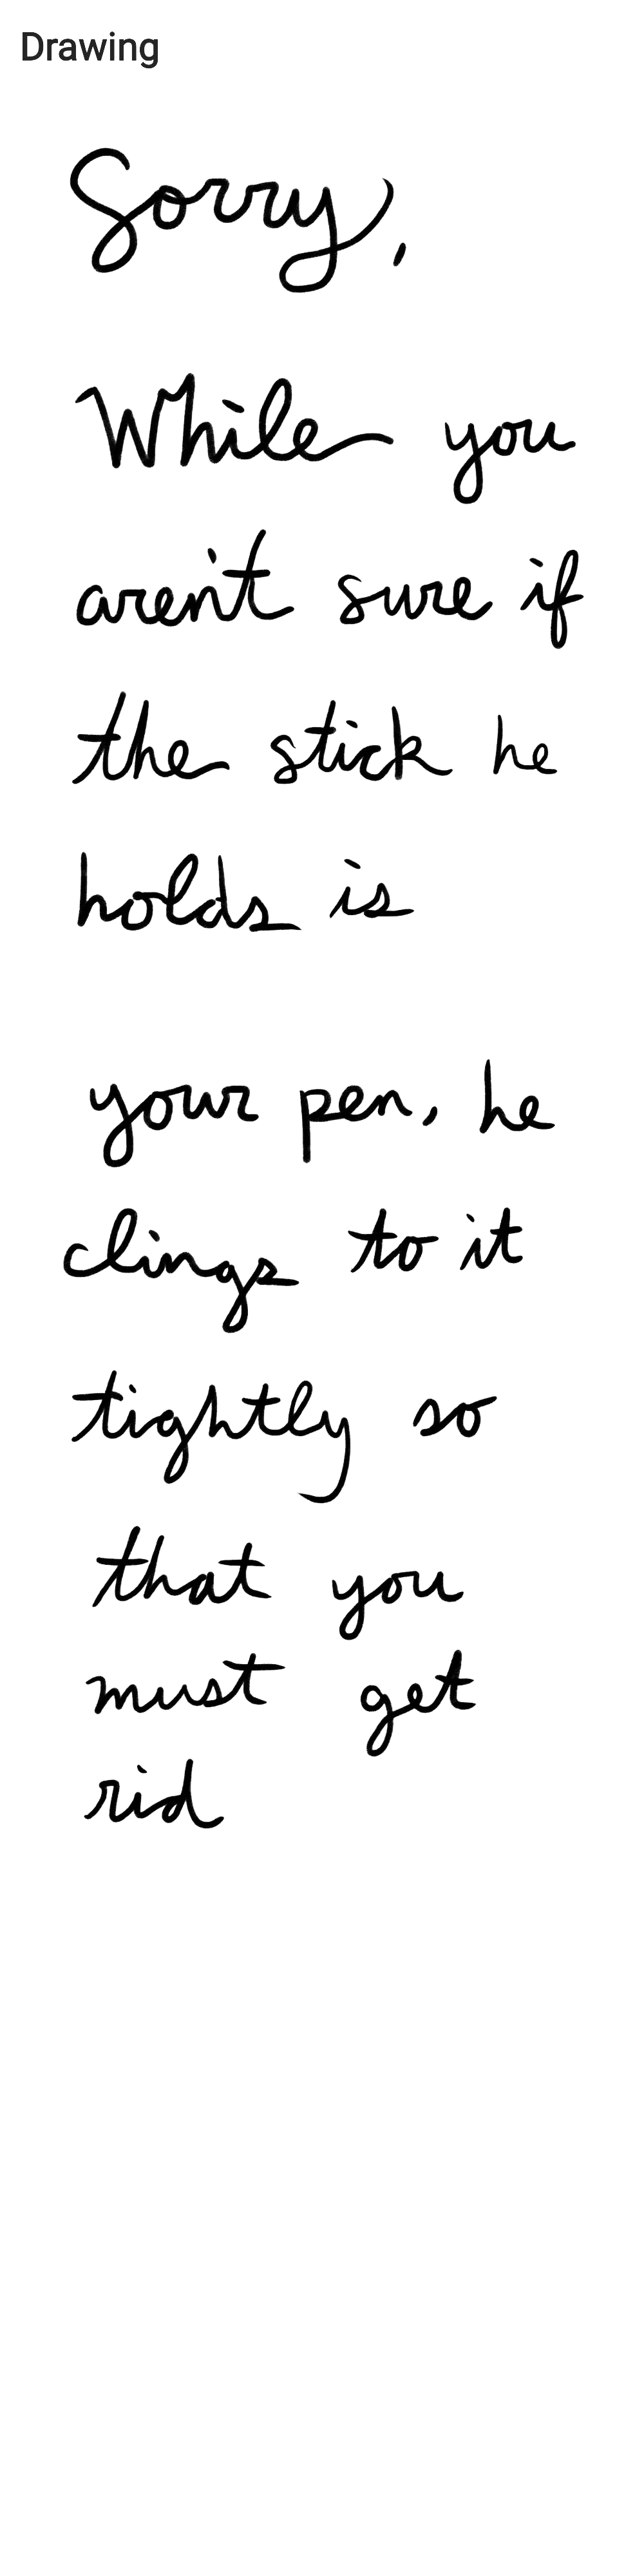 Drawing
Sorry,
While you
aren't sure if
the stick he
holds is
your pen, he
clings to it
tightly so
that you
must get
rid